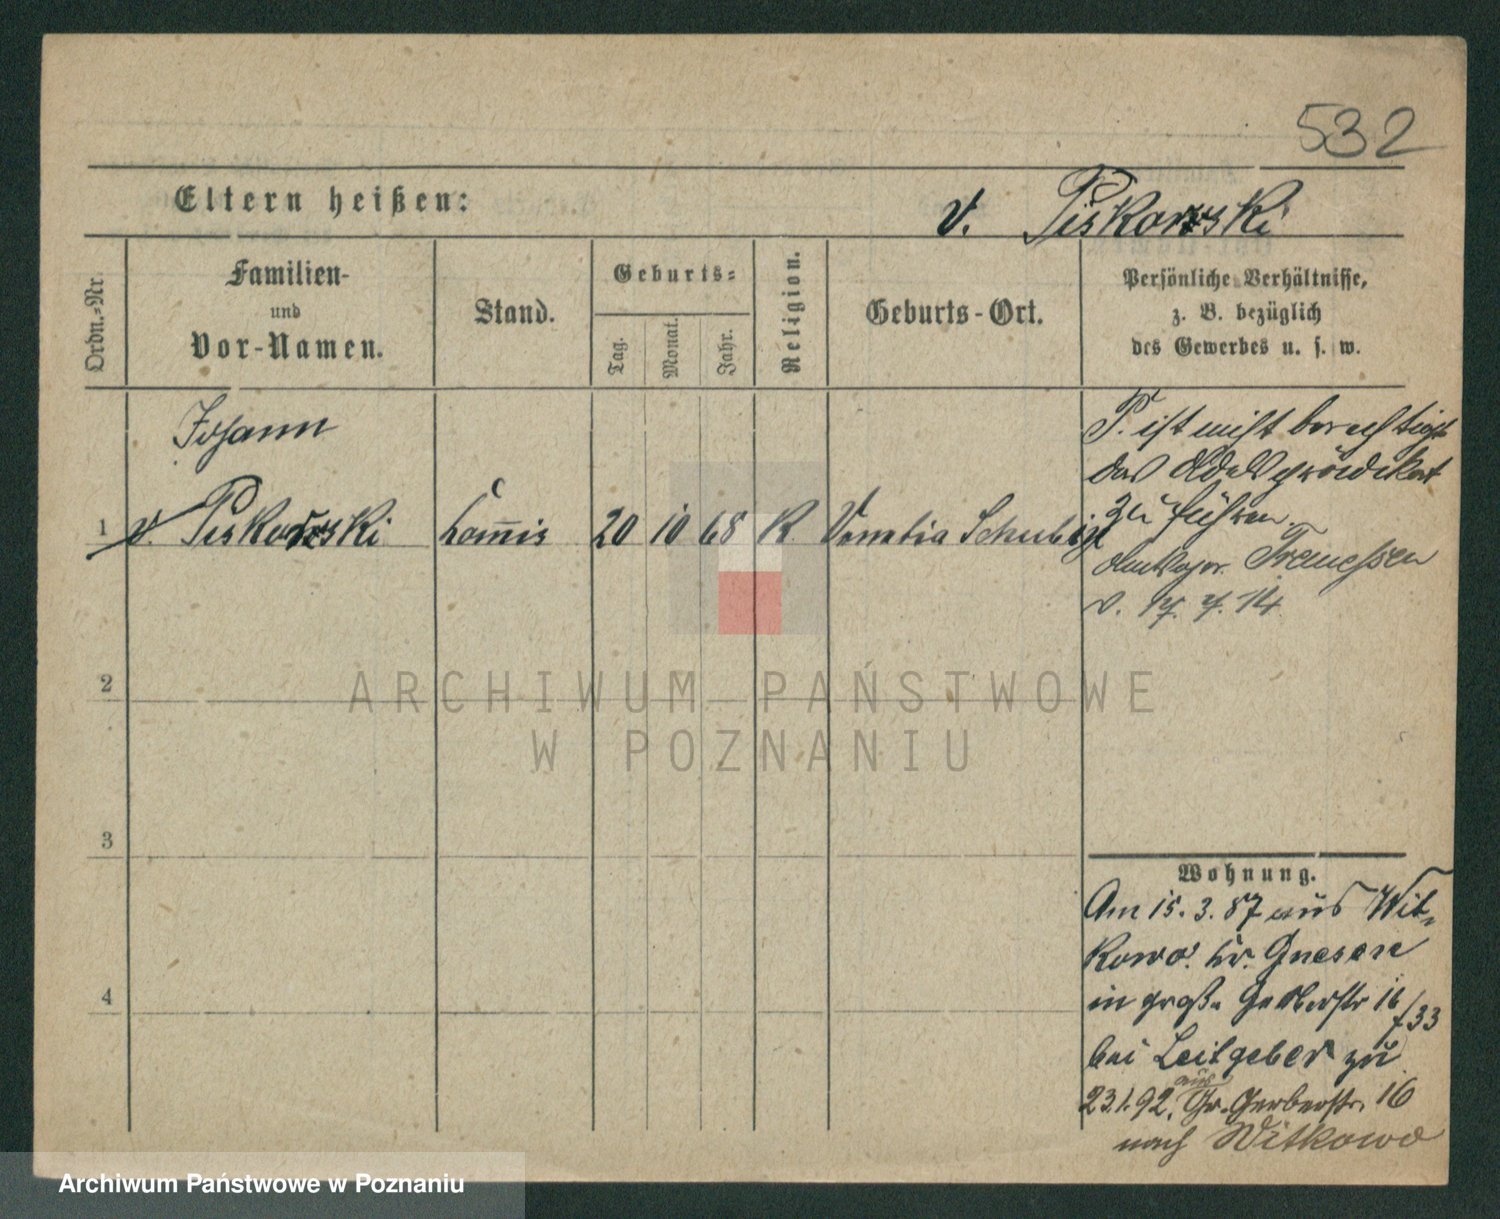 532
Eltern heißen:
v. Piskorski
Ordn.-Nr.
Familien-
und
Vor-Namen.
Stand.
Geburts-
Tag.
Monat.
Jahr.
Religion.
Geburts-Ort.
Persönliche Verhältnisse,
z. B. bezüglich
des Gewerbes u. s. w.
Johann
1 v. Piskorski Com̅is 20 10 68 K Venetia Schubin
P. ist nicht berechtigt
das Adelsprädikat
zu führen.
Tremessen
v. 17. 7. 14
2
3
4
Wohnung.
Am 15. 3. 87 aus Wit-
kowo. Kr. Gnesen
in große Gerberstr 16
/33
bei Leitgeber zu
23.1.92. aus Gr. Gerberstr. 16
nach Witkowo
ARCHIWUM PAŃSTWOWE
W POZNANIU
Archiwum Państwowe w Poznaniu